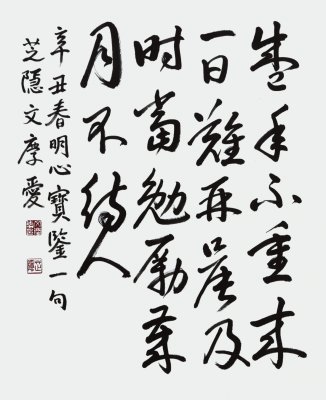 盛年不重来
一日難再晨及
時當勉勵歲
月不待人
辛丑春明心寶鑒一句
芝隱文摩愛